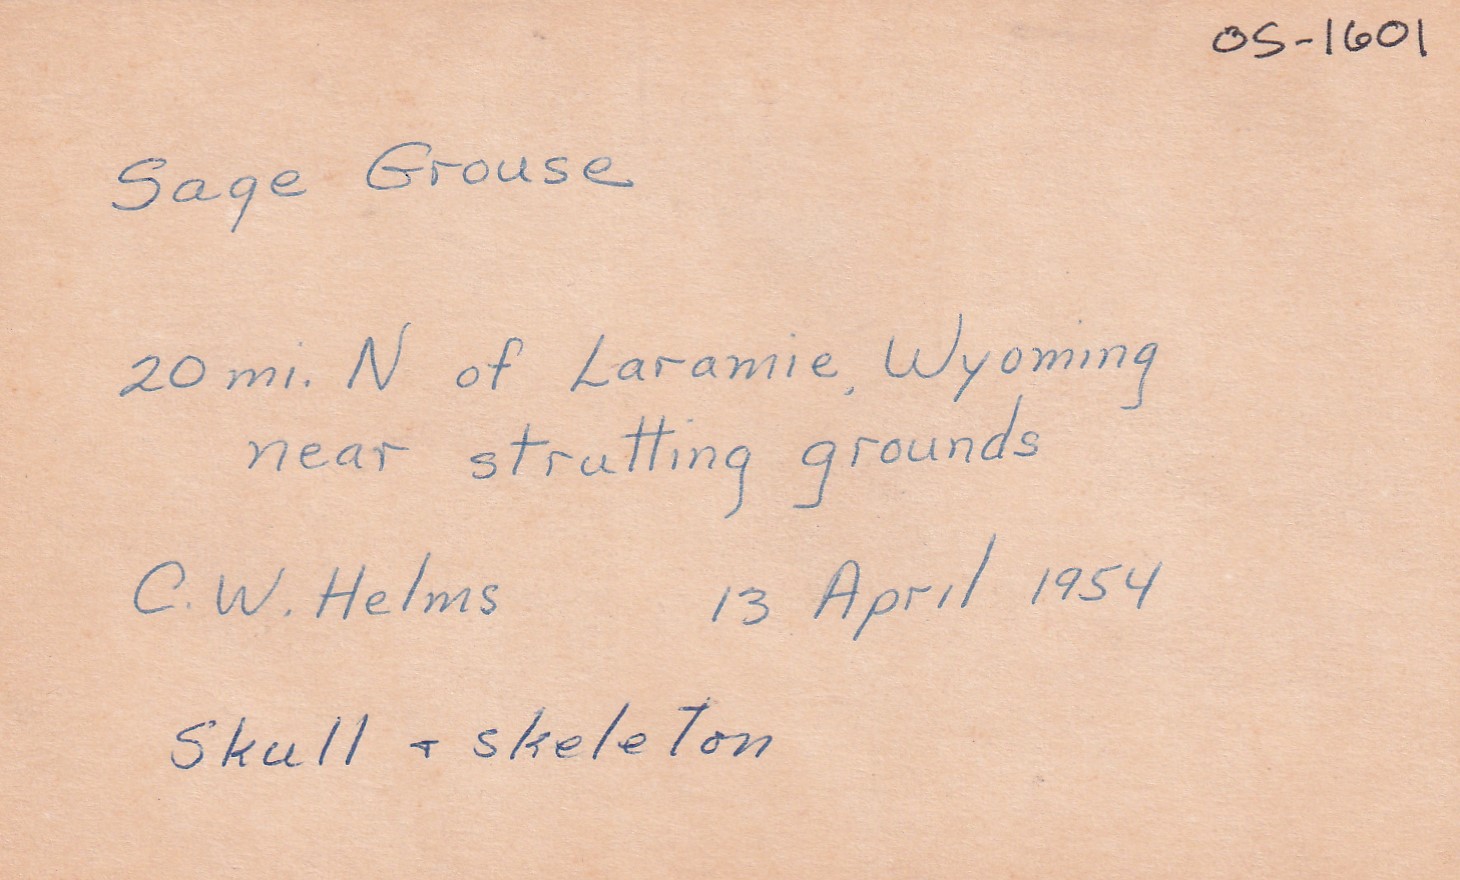 OS-1601
Sage Grouse
20 mi. N of Laramie, Wyoming
near strutting grounds
C. W. Helms 13 April 1954
Skull + skeleton